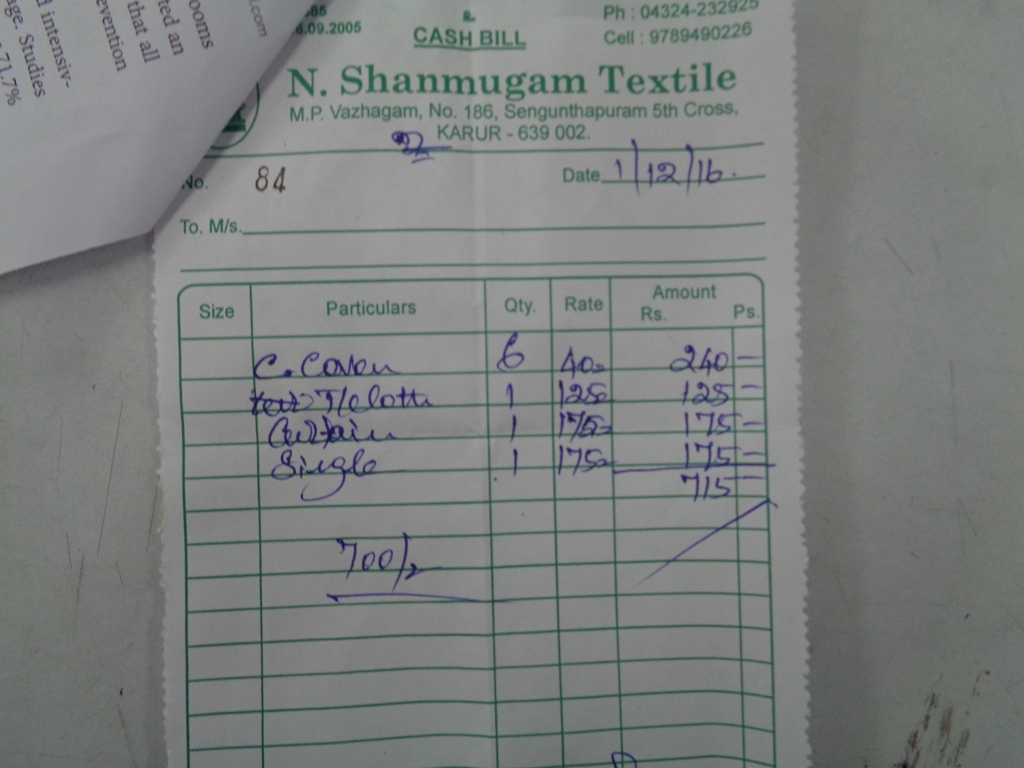 ooms
ted an
that all
evention
d intensiv-
age. Studies
71.7%
l.com
.09.2005
&
CASH BILL
Ph : 04324-232925
Cell : 9789490226
N. Shanmugam Textile
M.P. Vazhagam, No. 186, Sengunthapuram 5th Cross,
KARUR - 639 002.
No. 84 Date 1/12/16.
To. M/s.
Size Particulars Qty. Rate Amount
Rs. Ps.
C. Cover 6 40 240
T/cloth 1 125 125
Curtain 1 175 175
Single 1 175 175
715
700/-